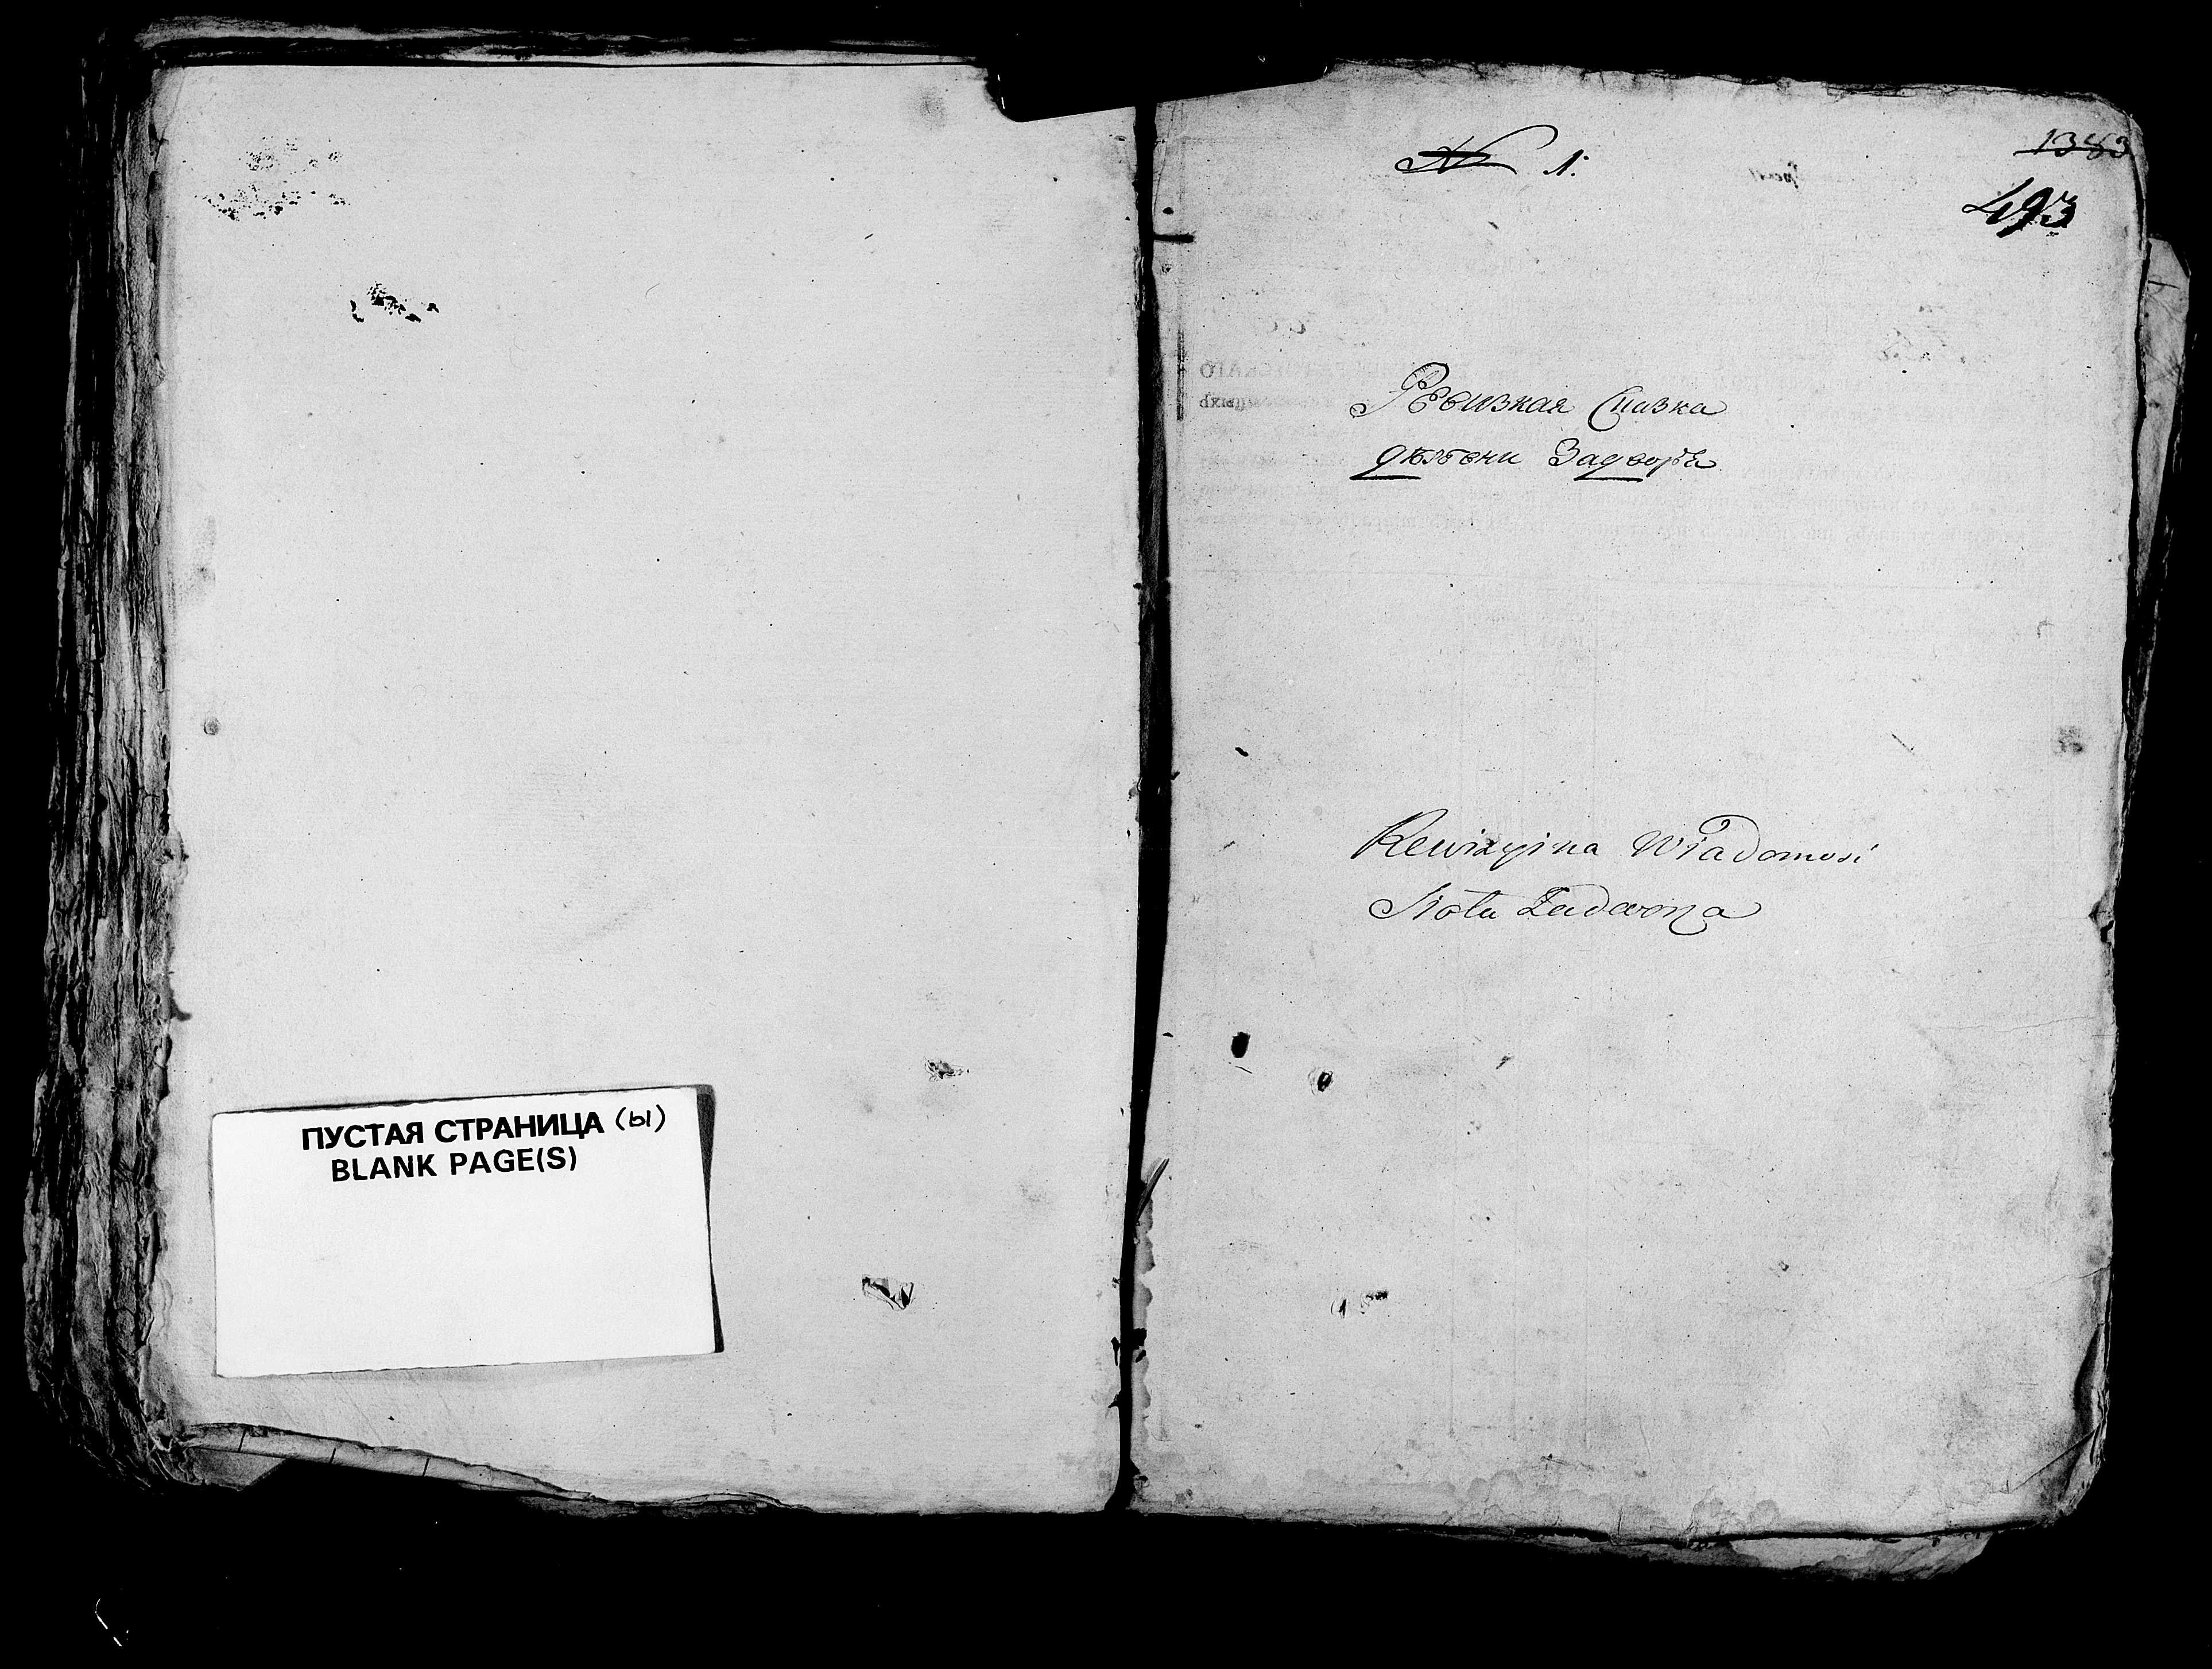 ПУСТАЯ СТРАНИЦА (Ы)
BLANK PAGE(S)
1383
№ 1:
493
Ревизкая Сказка
дѣревни Задворя
Rewizyina Wiadomosć
Sioła Zadworza